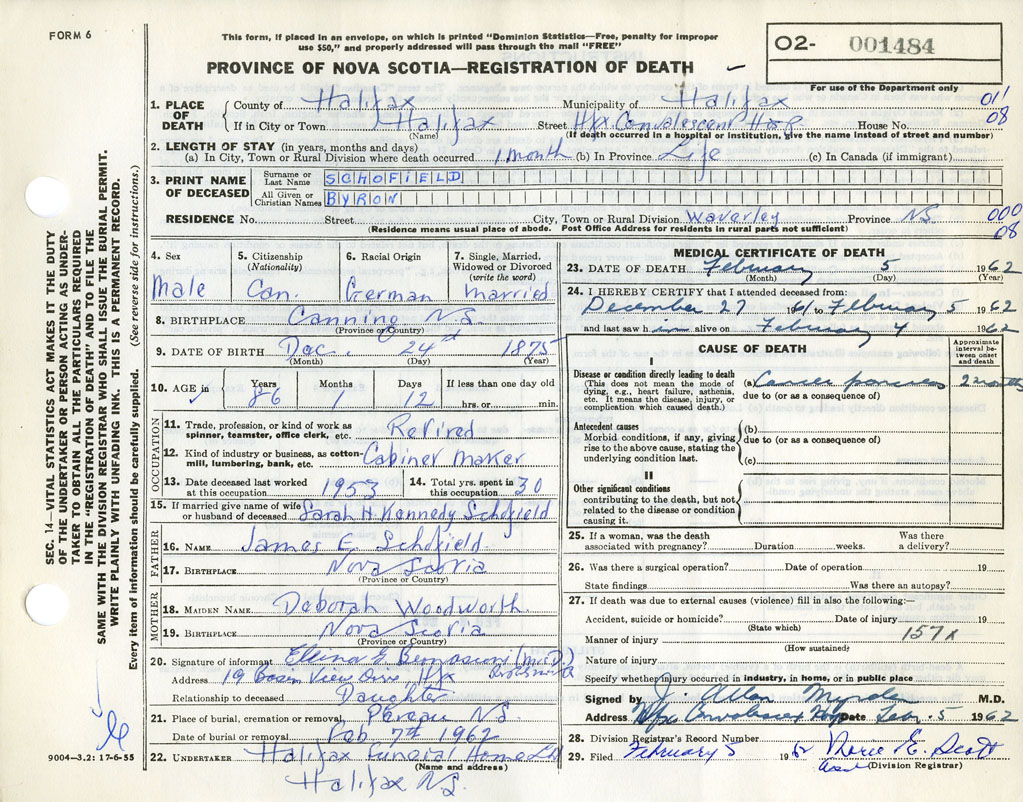 FORM 6
This form, if placed in an envelope, on which is printed "Dominion Statistics—Free, penalty for improper
use $50," and properly addressed will pass through the mail "FREE"
PROVINCE OF NOVA SCOTIA—REGISTRATION OF DEATH
O2- 001484
For use of the Department only
1. PLACE OF DEATH
County of Halifax Municipality of Halifax 011
If in City or Town Halifax Street Hfx Convalescent Hosp House No. 08
(Name) (If death occurred in a hospital or institution, give the name instead of street and number)
2. LENGTH OF STAY (in years, months and days)
(a) In City, Town or Rural Division where death occurred 1 month (b) In Province Life (c) In Canada (if immigrant)
3. PRINT NAME OF DECEASED
Surname or Last Name SCHOFIELD
All Given or Christian Names BYRON
RESIDENCE No. Street City, Town or Rural Division Waverley Province N.S. 000
(Residence means usual place of abode. Post Office Address for residents in rural parts not sufficient) 08
4. Sex
Male
5. Citizenship
(Nationality)
Can.
6. Racial Origin
German
7. Single, Married,
Widowed or Divorced
(write the word)
Married
8. BIRTHPLACE Canning N.S.
(Province or Country)
9. DATE OF BIRTH Dec. 24th 1875
(Month) (Day) (Year)
10. AGE Years Months Days If less than one day old
86 1 12 hrs. or min.
OCCUPATION
11. Trade, profession, or kind of work as
spinner, teamster, office clerk, etc. Retired
12. Kind of industry or business, as cotton-
mill, lumbering, bank, etc. Cabinet Maker
13. Date deceased last worked
at this occupation 1953
14. Total yrs. spent in
this occupation 30
15. If married give name of wife
or husband of deceased Sarah H. Kennedy Schofield
FATHER
16. NAME James E. Schofield
17. BIRTHPLACE Nova Scotia
(Province or Country)
MOTHER
18. MAIDEN NAME Deborah Woodworth
19. BIRTHPLACE Nova Scotia
(Province or Country)
20. Signature of informant (M.D.)
Address 19 Basin View Drive, Hfx
Relationship to deceased Daughter
21. Place of burial, cremation or removal N.S.
Date of burial or removal Feb 7th 1962
22. UNDERTAKER Halifax Funeral Home Ltd
(Name and address)
Halifax N.S.
MEDICAL CERTIFICATE OF DEATH
23. DATE OF DEATH February 5 1962
(Month) (Day) (Year)
24. I HEREBY CERTIFY that I attended deceased from:
December 27 1961 to February 5 1962
and last saw him alive on February 4 1962
CAUSE OF DEATH
Approximate
interval be-
tween onset
and death
I
Disease or condition directly leading to death
(This does not mean the mode of
dying, e.g., heart failure, asthenia,
etc. It means the disease, injury, or
complication which caused death.)
(a) Cancer pancreas 2 months
due to (or as a consequence of)
Antecedent causes
Morbid conditions, if any, giving
rise to the above cause, stating the
underlying condition last.
(b)
due to (or as a consequence of)
(c)
II
Other significant conditions
contributing to the death, but not
related to the disease or condition
causing it.
25. If a woman, was the death
associated with pregnancy? Duration weeks. Was there
a delivery?
26. Was there a surgical operation? Date of operation 19
State findings Was there an autopsy?
27. If death was due to external causes (violence) fill in also the following:—
Accident, suicide or homicide? Date of injury 19
(State which)
Manner of injury 157x
(How sustained)
Nature of injury
Specify whether injury occurred in industry, in home, or in public place
Signed by J. Allan Myrden M.D.
Address Hfx Convalescent Hosp Date Feb. 5 1962
28. Division Registrar's Record Number
29. Filed February 5 1962 E. Scott
(Division Registrar)
SEC. 14—VITAL STATISTICS ACT MAKES IT THE DUTY
OF THE UNDERTAKER OR PERSON ACTING AS UNDER-
TAKER TO OBTAIN ALL THE PARTICULARS REQUIRED
IN THE "REGISTRATION OF DEATH" AND TO FILE THE
SAME WITH THE DIVISION REGISTRAR WHO SHALL ISSUE THE BURIAL PERMIT.
WRITE PLAINLY WITH UNFADING INK. THIS IS A PERMANENT RECORD.
Every item of information should be carefully supplied. (See reverse side for instructions.)
9004—3.2: 17-6-55